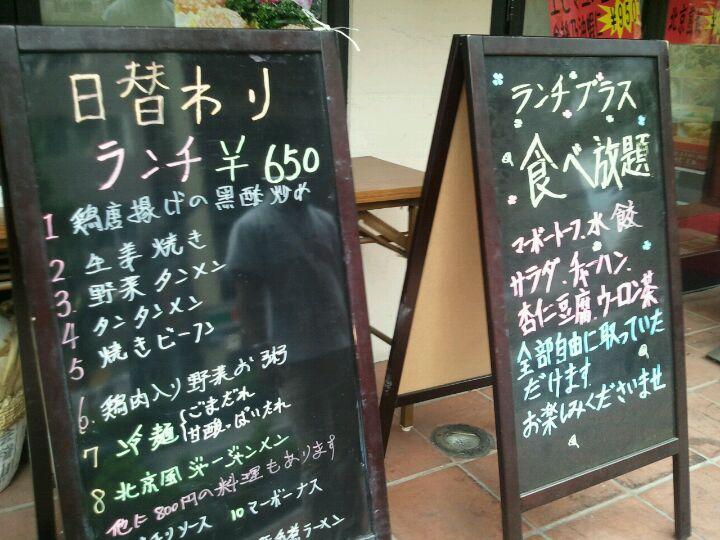 日替わり
ランチ ¥650
1 鶏唐揚げの黒酢炒め
2 生姜焼き
3. 野菜タンメン
4 タンタンメン
5 焼きビーフン
6. 鶏肉入り野菜お粥
7 冷麺 ごまだれ
甘酸っぱいたれ
8 北京風ジャージャンメン
他に800円の料理もあります
チリソース 10 マーボーナス
ラーメン
ランチプラス
食べ放題
マーボートーフ.水餃
サラダ.チャーハン.
杏仁豆腐.ウーロン茶
全部自由に取っていた
だけます
お楽しみくださいませ
¥950
北京